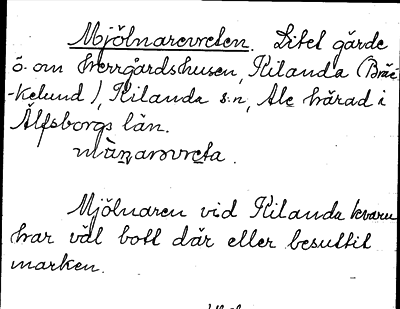 Mjölnarevreten. Litet gärde
ö. om herrgårdshusen, Kilanda (Bräc-
-kelund), Kilanda s:n, Ale härad i
Älfsborgs län.
Mjölnaren vid Kilanda kvarn
har väl bott där eller besuttit
marken.